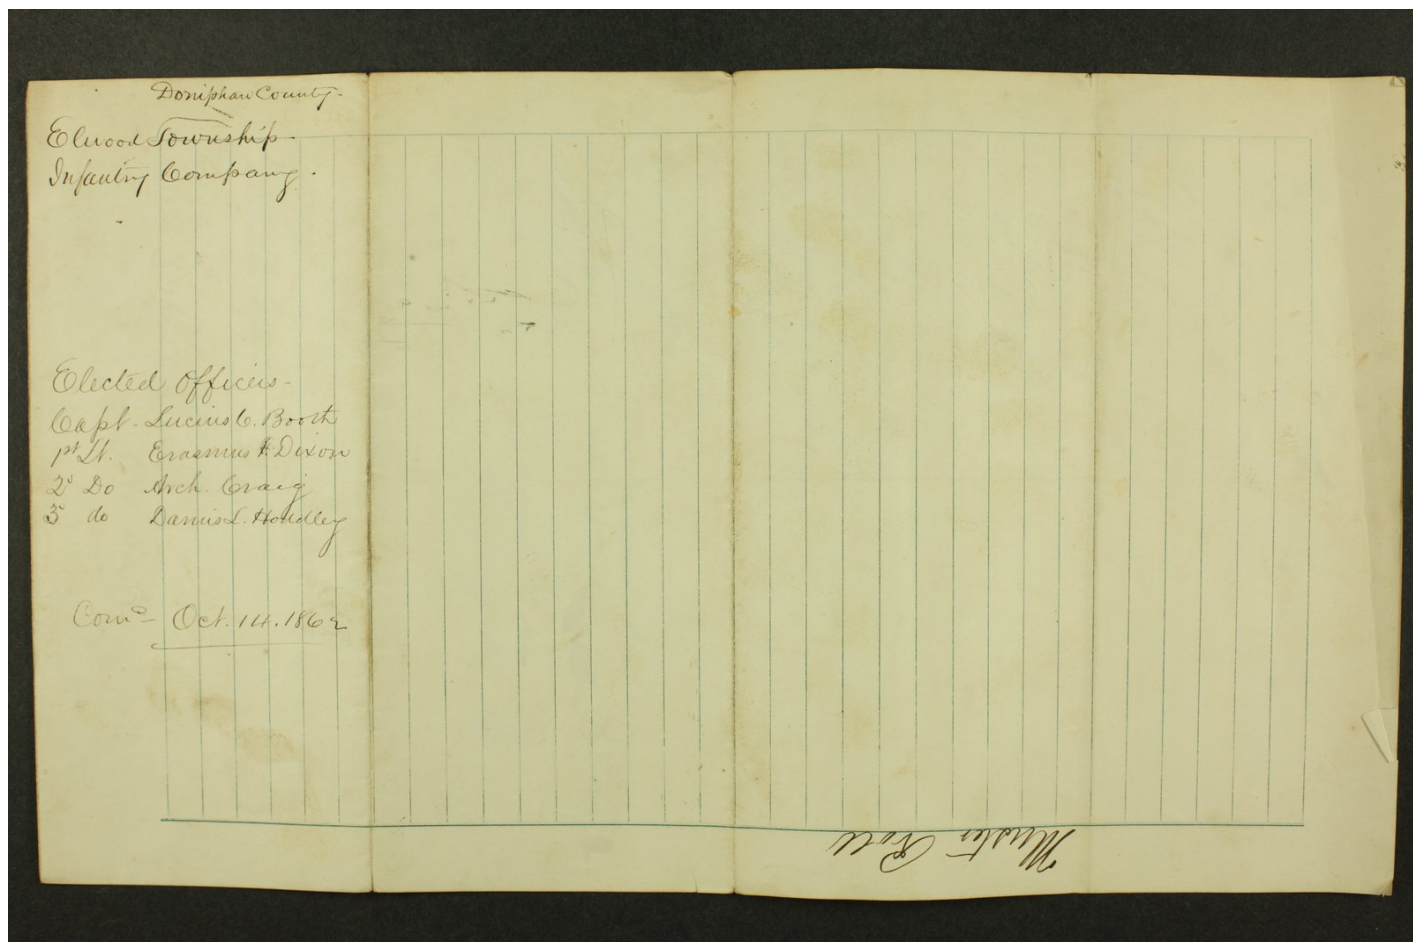 Doniphan County-
Elwood Township-
Infantry Company.
Elected Officers-
Capt. Lucius C. Booth
1st Lt. Erasmus Dixon
2d Do Arch. Craig
3 do L. Hoadley
Comd- Oct. 14. 1862
Muster Roll